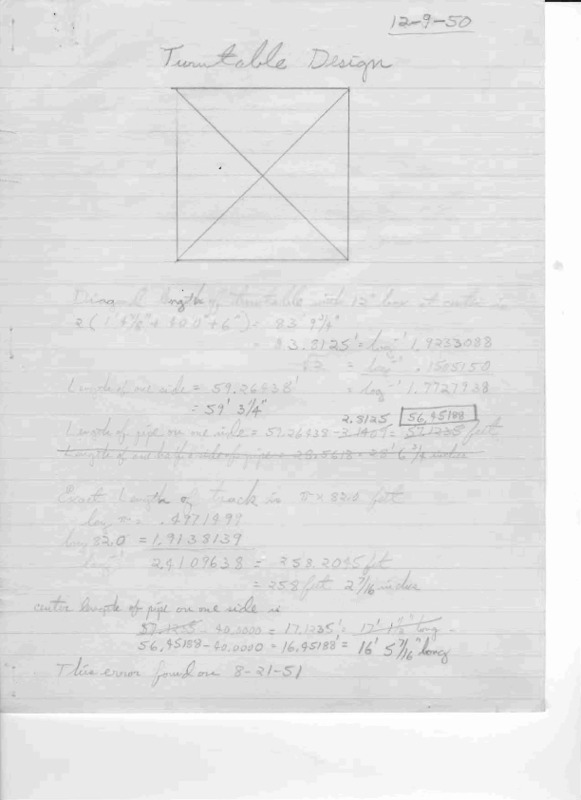 12-9-50
Turntable Design
Diagonal length of turntable with 12" box at center is
2 ( 1' 4 7/8" + 40' 0" + 6" ) = 83' 9 3/4"
= 83.8125' = log⁻¹ 1.9233088
√2 = log⁻¹ .1505150
Length of one side = 59.26438' = log⁻¹ 1.7727938
= 59' 3/4"
2.8125 56.45188
Length of pipe on one side = 59.26438 - 2.1409 = 57.1235 feet
Length of one half side of pipe = 28.5618 = 28' 6 3/4 inches
Exact Length of track is π × 82.0 feet
log π = .4971499
log 82.0 = 1.9138139
log⁻¹ 2.4109638 = 258.2045 feet
= 258 feet 2 7/16 inches
center length of pipe on one side is
57.1235 - 40.0000 = 17.1235' = 17' 1 1/2" long
56.45188 - 40.0000 = 16.45188' = 16' 5 7/16" long
This error found on 8-21-51